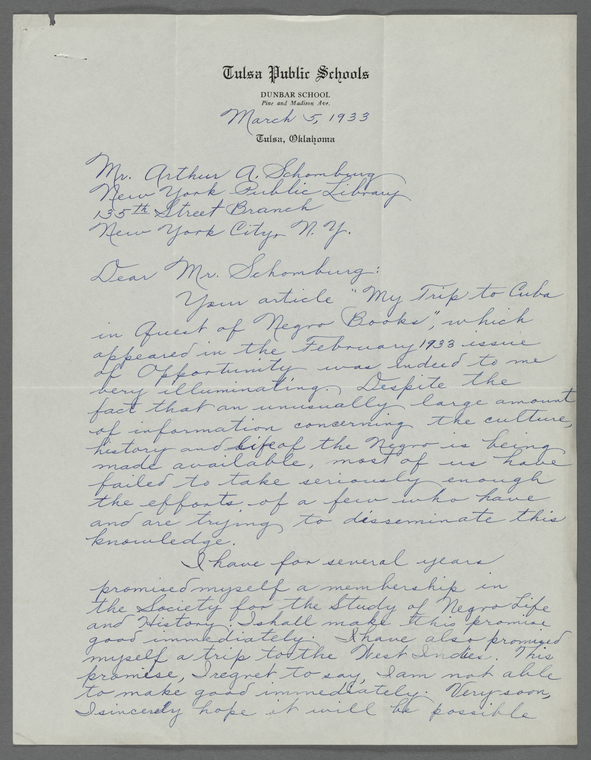 Tulsa Public Schools
DUNBAR SCHOOL
Pine and Madison Ave.
March 5, 1933
Tulsa, Oklahoma
Mr. Arthur A. Schomburg
New York Public Library
135th Street Branch
New York City, N.Y.
Dear Mr. Schomburg:
Your article "My Trip to Cuba
in Quest of Negro Books", which
appeared in the February 1933 issue
of Opportunity was indeed to me
very illuminating. Despite the
fact that an unusually large amount
of information concerning the culture,
history and life of the Negro is being
made available, most of us have
failed to take seriously enough
the efforts of a few who have
and are trying to disseminate this
knowledge.
I have for several years
promised myself a membership in
the Society for the Study of Negro Life
and History. I shall make this promise
good immediately. I have also promised
myself a trip to the West Indies. This
promise, I regret to say, I am not able
to make good immediately. Very soon,
I sincerely hope it will be possible